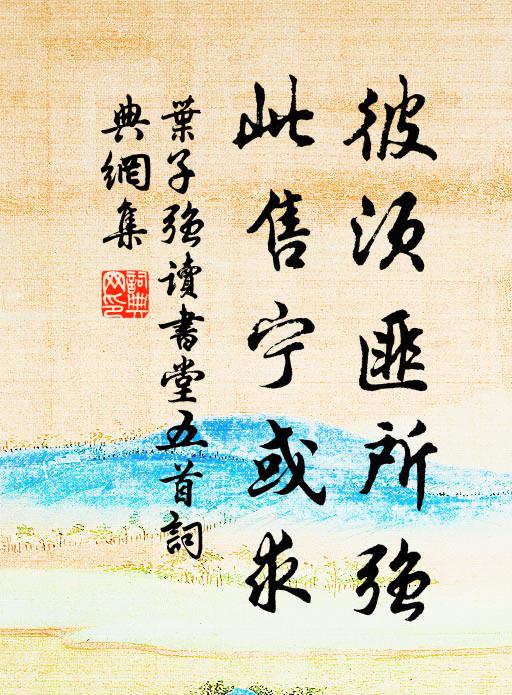 彼須匪所強
此售宁或求
葉子強讀書堂五首詞
典網集
詞典網印